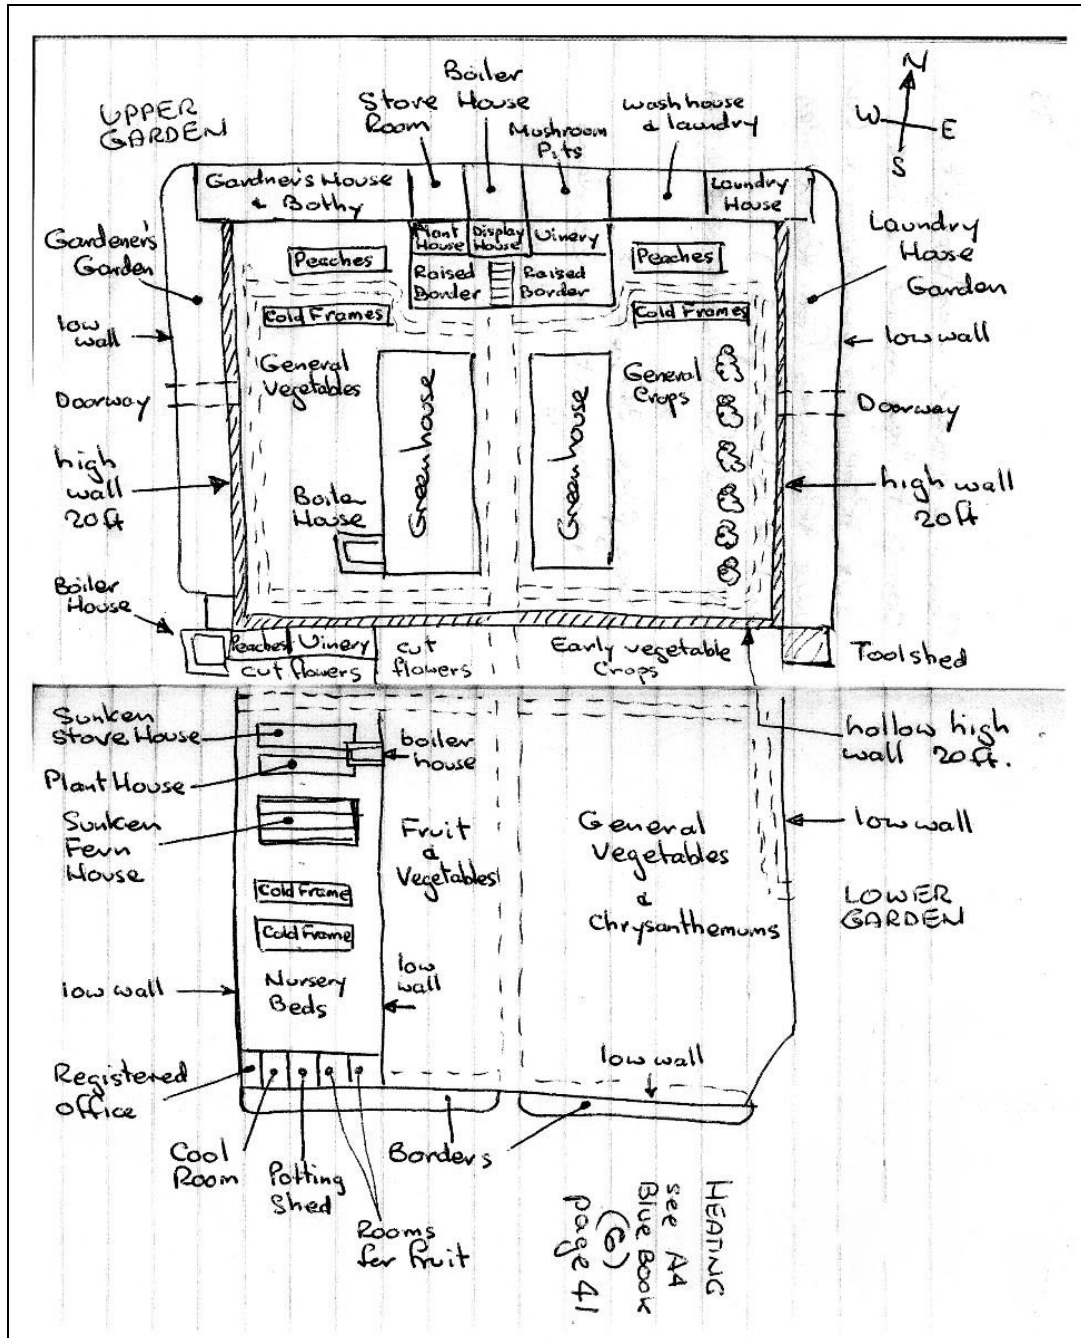 UPPER
GARDEN
Store
Room
Boiler
House
Mushroom
Pits
wash house
& laundry
N
W E
S
Gardner's House
& Bothy
Laundry
House
Gardener's
Garden
Plant
House
Display
House
Vinery
Laundry
House
Garden
Peaches
Raised
Border
Raised
Border
Peaches
low
wall
Cold Frames
Cold Frames
low wall
General
Vegetables
General
Crops
Doorway
Doorway
Greenhouse
Greenhouse
high
wall
20ft
high wall
20ft
Boiler
House
Boiler
House
Peaches
Vinery
cut flowers
cut
flowers
Early vegetable
Crops
Toolshed
Sunken
Stove House
boiler
house
hollow high
wall 20ft.
Plant House
Sunken
Fern
House
Fruit
&
Vegetables
General
Vegetables
&
Chrysanthemums
low wall
LOWER
GARDEN
Cold Frame
Cold Frame
low wall
Nursery
Beds
low
wall
low wall
Registered
office
Cool
Room
Potting
Shed
Rooms
for fruit
Borders
HEATING
see A4
Blue Book
(6)
page 41